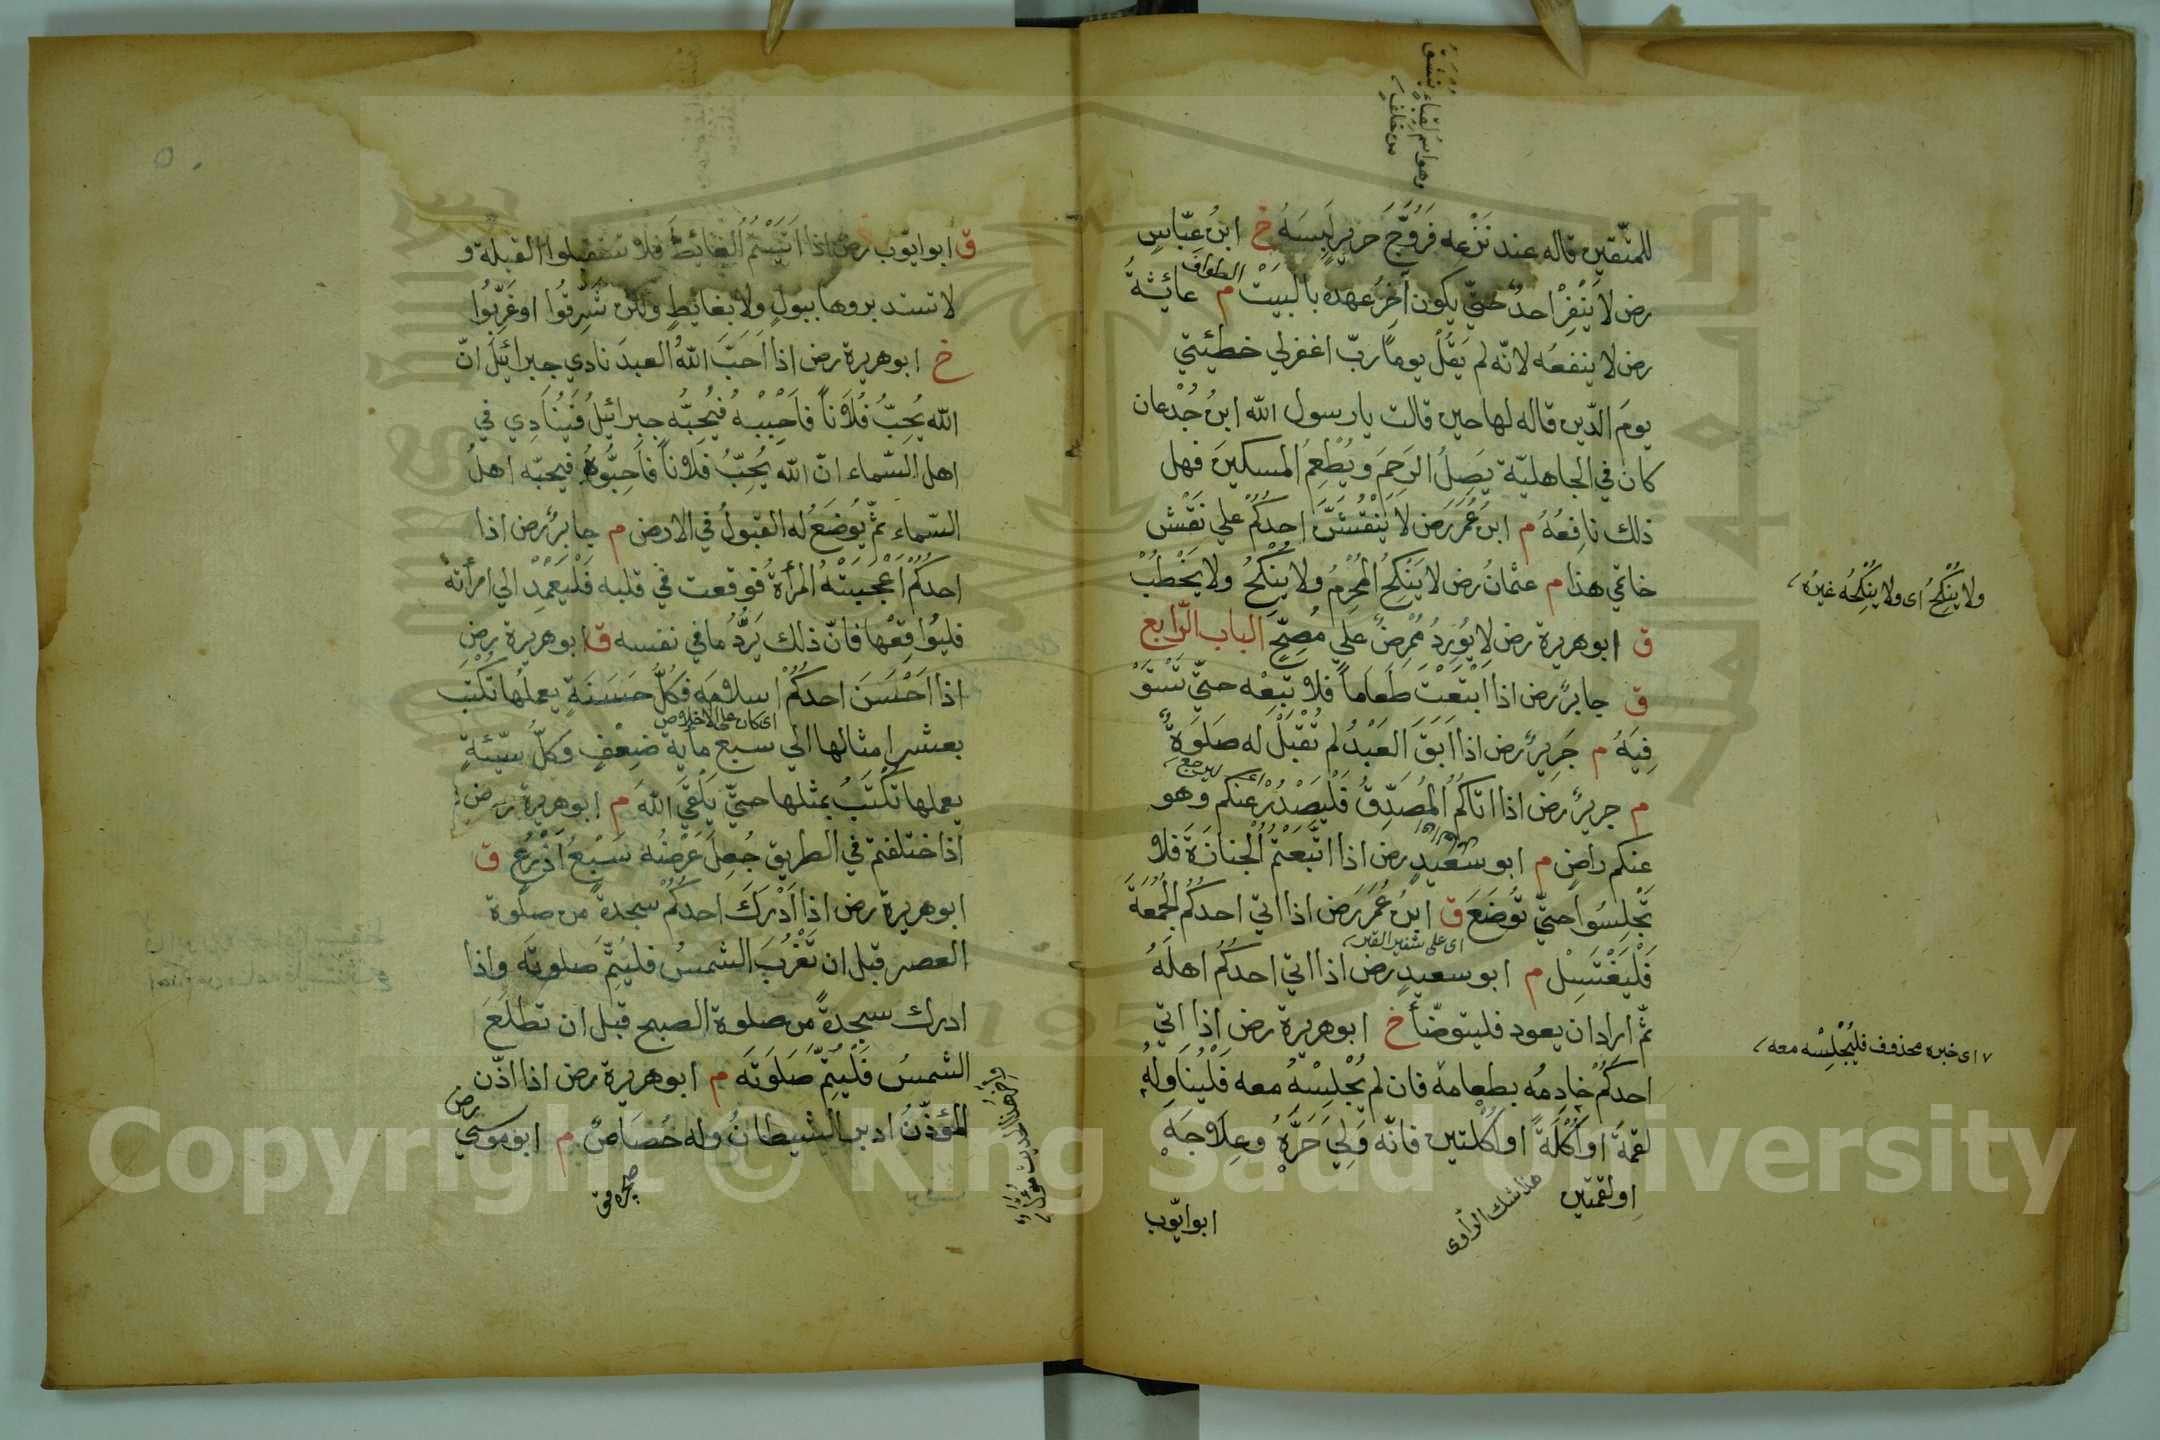 وهو اسم لقباء
من خلف
للمتّقين قاله عند نَزْعِه فَرُّوجَ حَريرٍ لَبِسَهُ خ ابنُ عبّاسٍ
الطواف
رض لا يَنْفِرْ احدٌ حتيّ يكون آخرُ عهده بالبَيْت م عائشةُ
رض لا ينفعُه لانّه لم يَقُلْ يوماً ربّ اغفرلي خطئيتي
يومَ الدّين قاله لها حين قالت يا رسول الله ابنُ جُدْعان
كان في الجاهليّة يَصِلُ الرَحِمَ ويُطْعِمُ المسكينَ فهل
ذلك نافِعُهُ م ابنُ عُمَرَ رَض لا يَنْقُشَنَّ احدُكُم علي نَقْش
خاتمي هذا م عثمانُ رض لا يَنكِحُ المُحْرِمُ ولا يُنْكَحُ ولا يَخْطُبْ
ولا يُنْكِحُ اى ولا يُنْكِحُه غيرُه
ق ابوهريرة رض لا يُورِدُ مُمْرِضٌ علي مُصِحٍّ الباب الرّابع
ق جابرٌ رض اذا ابْتَعْتَ طَعاماً فلا تَبِعْه حتيّ تَسْتَوْ
فِيَهُ م جَرِيرٌ رض اذا اَبَقَ العَبْدُ لم تُقْبَلْ له صَلوةٌ
ليرجع
م جريرٌ رض اذا اتاكمُ المُصَدِّقُ فَلْيَصْدُرْ عنكم وهو
عنكم راضٍ م ابو سَعيدٍ رض اذا اتَّبَعْتُمُ الجنازَةَ فلا
تَجْلِسُوا حتيّ تُوضَعَ ق ابنُ عُمَرَ رَض اذا اتي احدُكُم الجُمُعَةَ
اى على شفير القبر
فَلْيَغْتَسِلْ م ابو سعيدٍ رض اذا اتي احدُكُم اهلَهُ
ثمّ اراد ان يعود فليتوضّأ خ ابوهريرة رض اذا اتي
٧ اى خبره محذوف فليُجْلِسْه معه
احدَكُمْ خادِمُه بطعامه فان لم يُجْلِسْهُ معه فَلْيُناوِلْهُ
لقمةً او اُكْلَةً او اُكْلتين فانّه وَلِيَ حَرَّهُ وعِلاجَهُ
او لقمتين
هذا شك الرّاوى
ابو ايّوب
ق ابو ايّوب رض اذا اتَيْتُمُ الغائِطَ فلا تستقبلوا القبلة و
لا تستدبروها ببولٍ ولا بغائيطٍ ولكن شَرِّقُوا او غَرِّبُوا
خ ابوهريرة رض اذا اَحَبَّ اللهُ العبدَ نادي جبرائيلَ انّ
الله يُحِبُّ فُلاَناً فاَحْبِبْهُ فيُحِبُّه جبرائيلُ فَيُنادِي في
اهل السّماء انّ الله يُحِبُّ فلاناً فاَحِبُّوهُ فيحبّه اهلُ
السّماء ثمّ يُوضَعُ له القبولُ في الارض م جابرٌ رض اذا
احدُكُمْ اَعْجَبَتْهُ المرأةُ فوقعت في قلبه فَلْيَعْمِدْ الي امرأته
فليُواقِعْها فانّ ذلك يَرُدُّ ما في نفسه ق ابوهريرة رض
اذا اَحْسَنَ احدُكُمْ اسلامَه فكلُّ حَسَنَةٍ يعملُها تُكْتَب
اى كان على الاخلاص
بعشر امثالها الي سبع ماية ضِعْفٍ وَكلُّ سيّئةٍ
يعملها تُكْتَبُ بمثلها حتيّ يَلْقَي اللهَ م ابوهريرة رض
اذا ختلفتم في الطريق جُعِلَ عَرْضُه سَبْعُ اَذْرُعٍ ق
ابوهريرة رض اذا اَدْرَكَ احدُكُمْ سجدةً من صلوة
العصر قبل ان تَغْرُبَ الشمسُ فليُتِمَّ صلوتَه واذا
ادرك سجدةً من صلوة الصبح قبل ان تطلَعَ
الشمسُ فَلْيُتِمَّ صَلَوتَه م ابوهريرة رض اذا اذّن
المؤذّنُ ادبر الشيطانُ وله حُصَاصٌ م ابو موسي رض